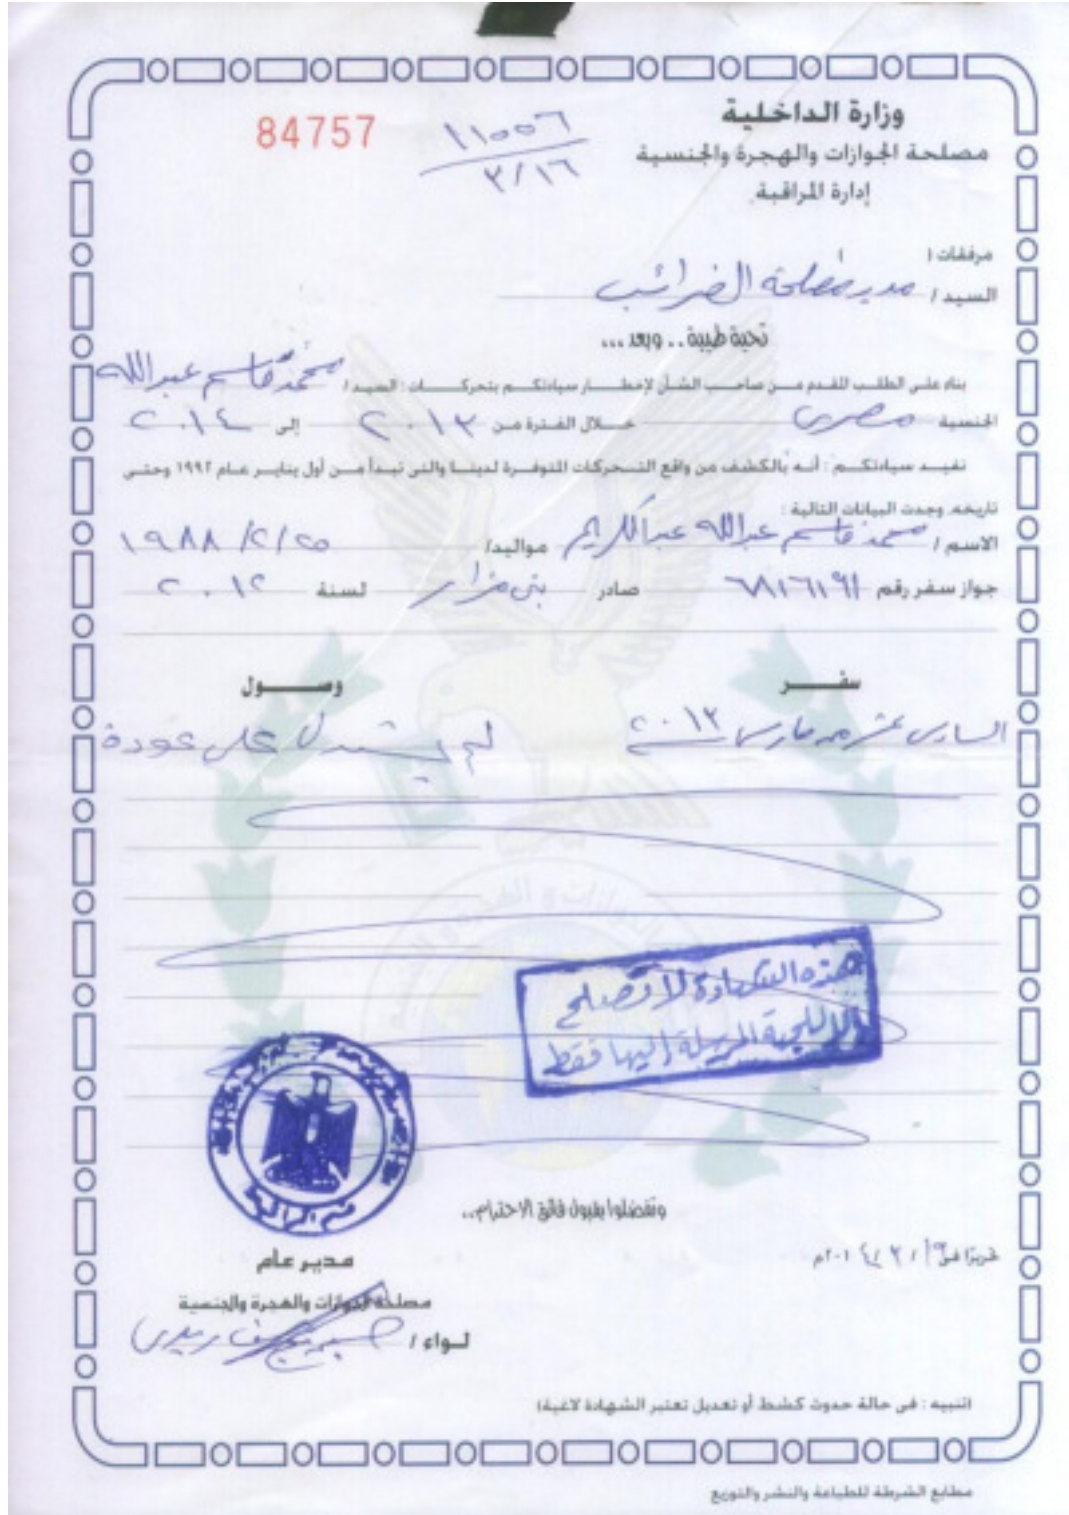 وزارة الداخلية
84757
١١٥٥٦
٣/١٦
مصلحة الجوازات والهجرة والجنسية
إدارة المراقبة
مرفقات (        )
السيد / مدير مصلحة الضرائب
تحية طيبة .. وبعد ...
بناء على الطلب المقدم من صاحب الشأن لإخطار سيادتكم بتحركات : السيد / محمد قاسم عبدالله
الجنسية مصرى خلال الفترة من ٢٠١٣ إلى ٢٠١٤
نفيد سيادتكم : أنه بالكشف من واقع التحركات المتوفرة لدينا والتى تبدأ من أول يناير عام ١٩٩٢ وحتى
تاريخه. وجدت البيانات التالية :
الاسم / محمد قاسم عبدالله عبدالكريم مواليد/ ١٩٨٨/٢/٢٥
جواز سفر رقم ٦٨١٦١٩١ صادر بنى مزار لسنة ٢٠١٢
سفر وصول
السادس عشر من مارس ٢٠١٣ لم يستدل على عودة
هذه الشهادة لا تصلح
إلا للجهة المرسلة إليها فقط
وتفضلوا بقبول فائق الاحترام..
تحريرًا فى ١٩ / ٣ / ٢٠١٤م
مدير عام
مصلحة الجوازات والهجرة والجنسية
لواء /
(تنبيه : فى حالة حدوث كشط أو تعديل تعتبر الشهادة لاغية)
مطابع الشرطة للطباعة والنشر والتوزيع